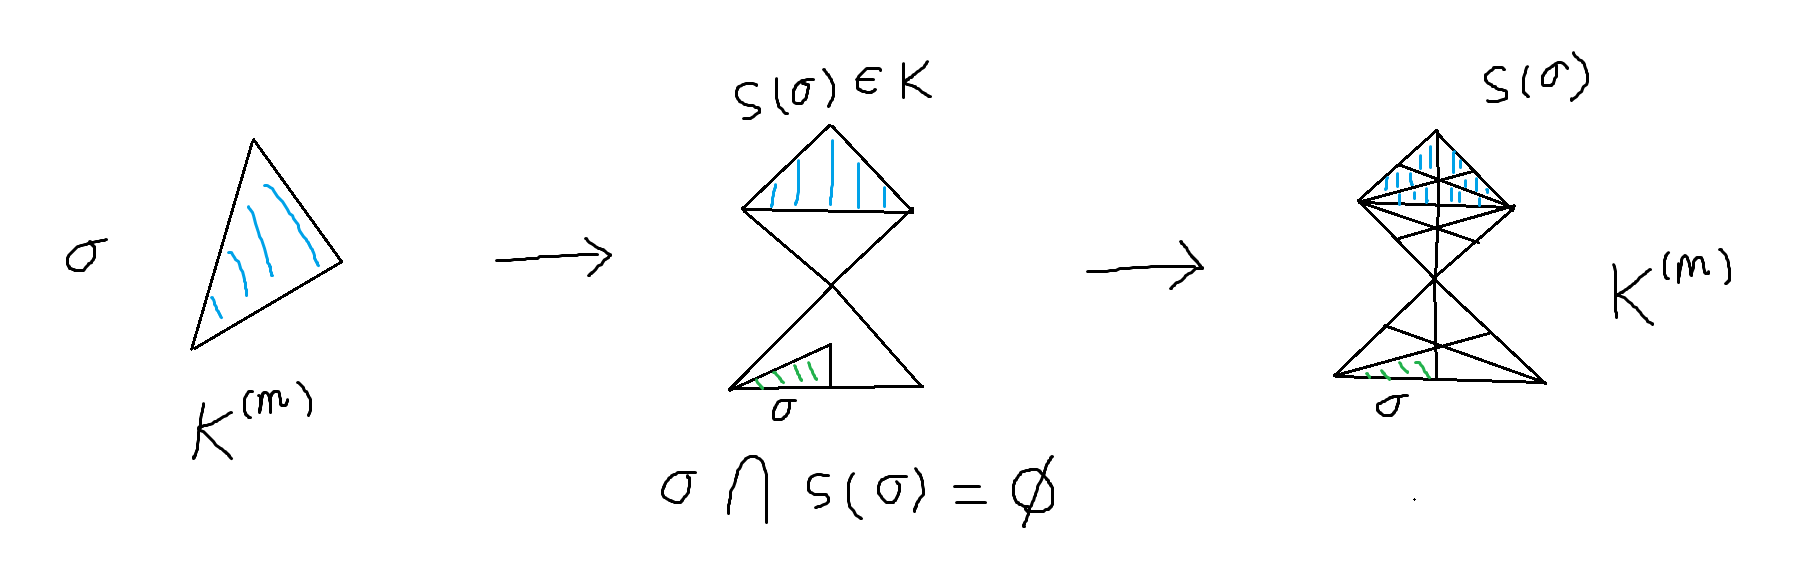 σ
K^(m)
S(σ) ∈ K
σ
σ ∩ S(σ) = ∅
S(σ)
K^(m)
σ